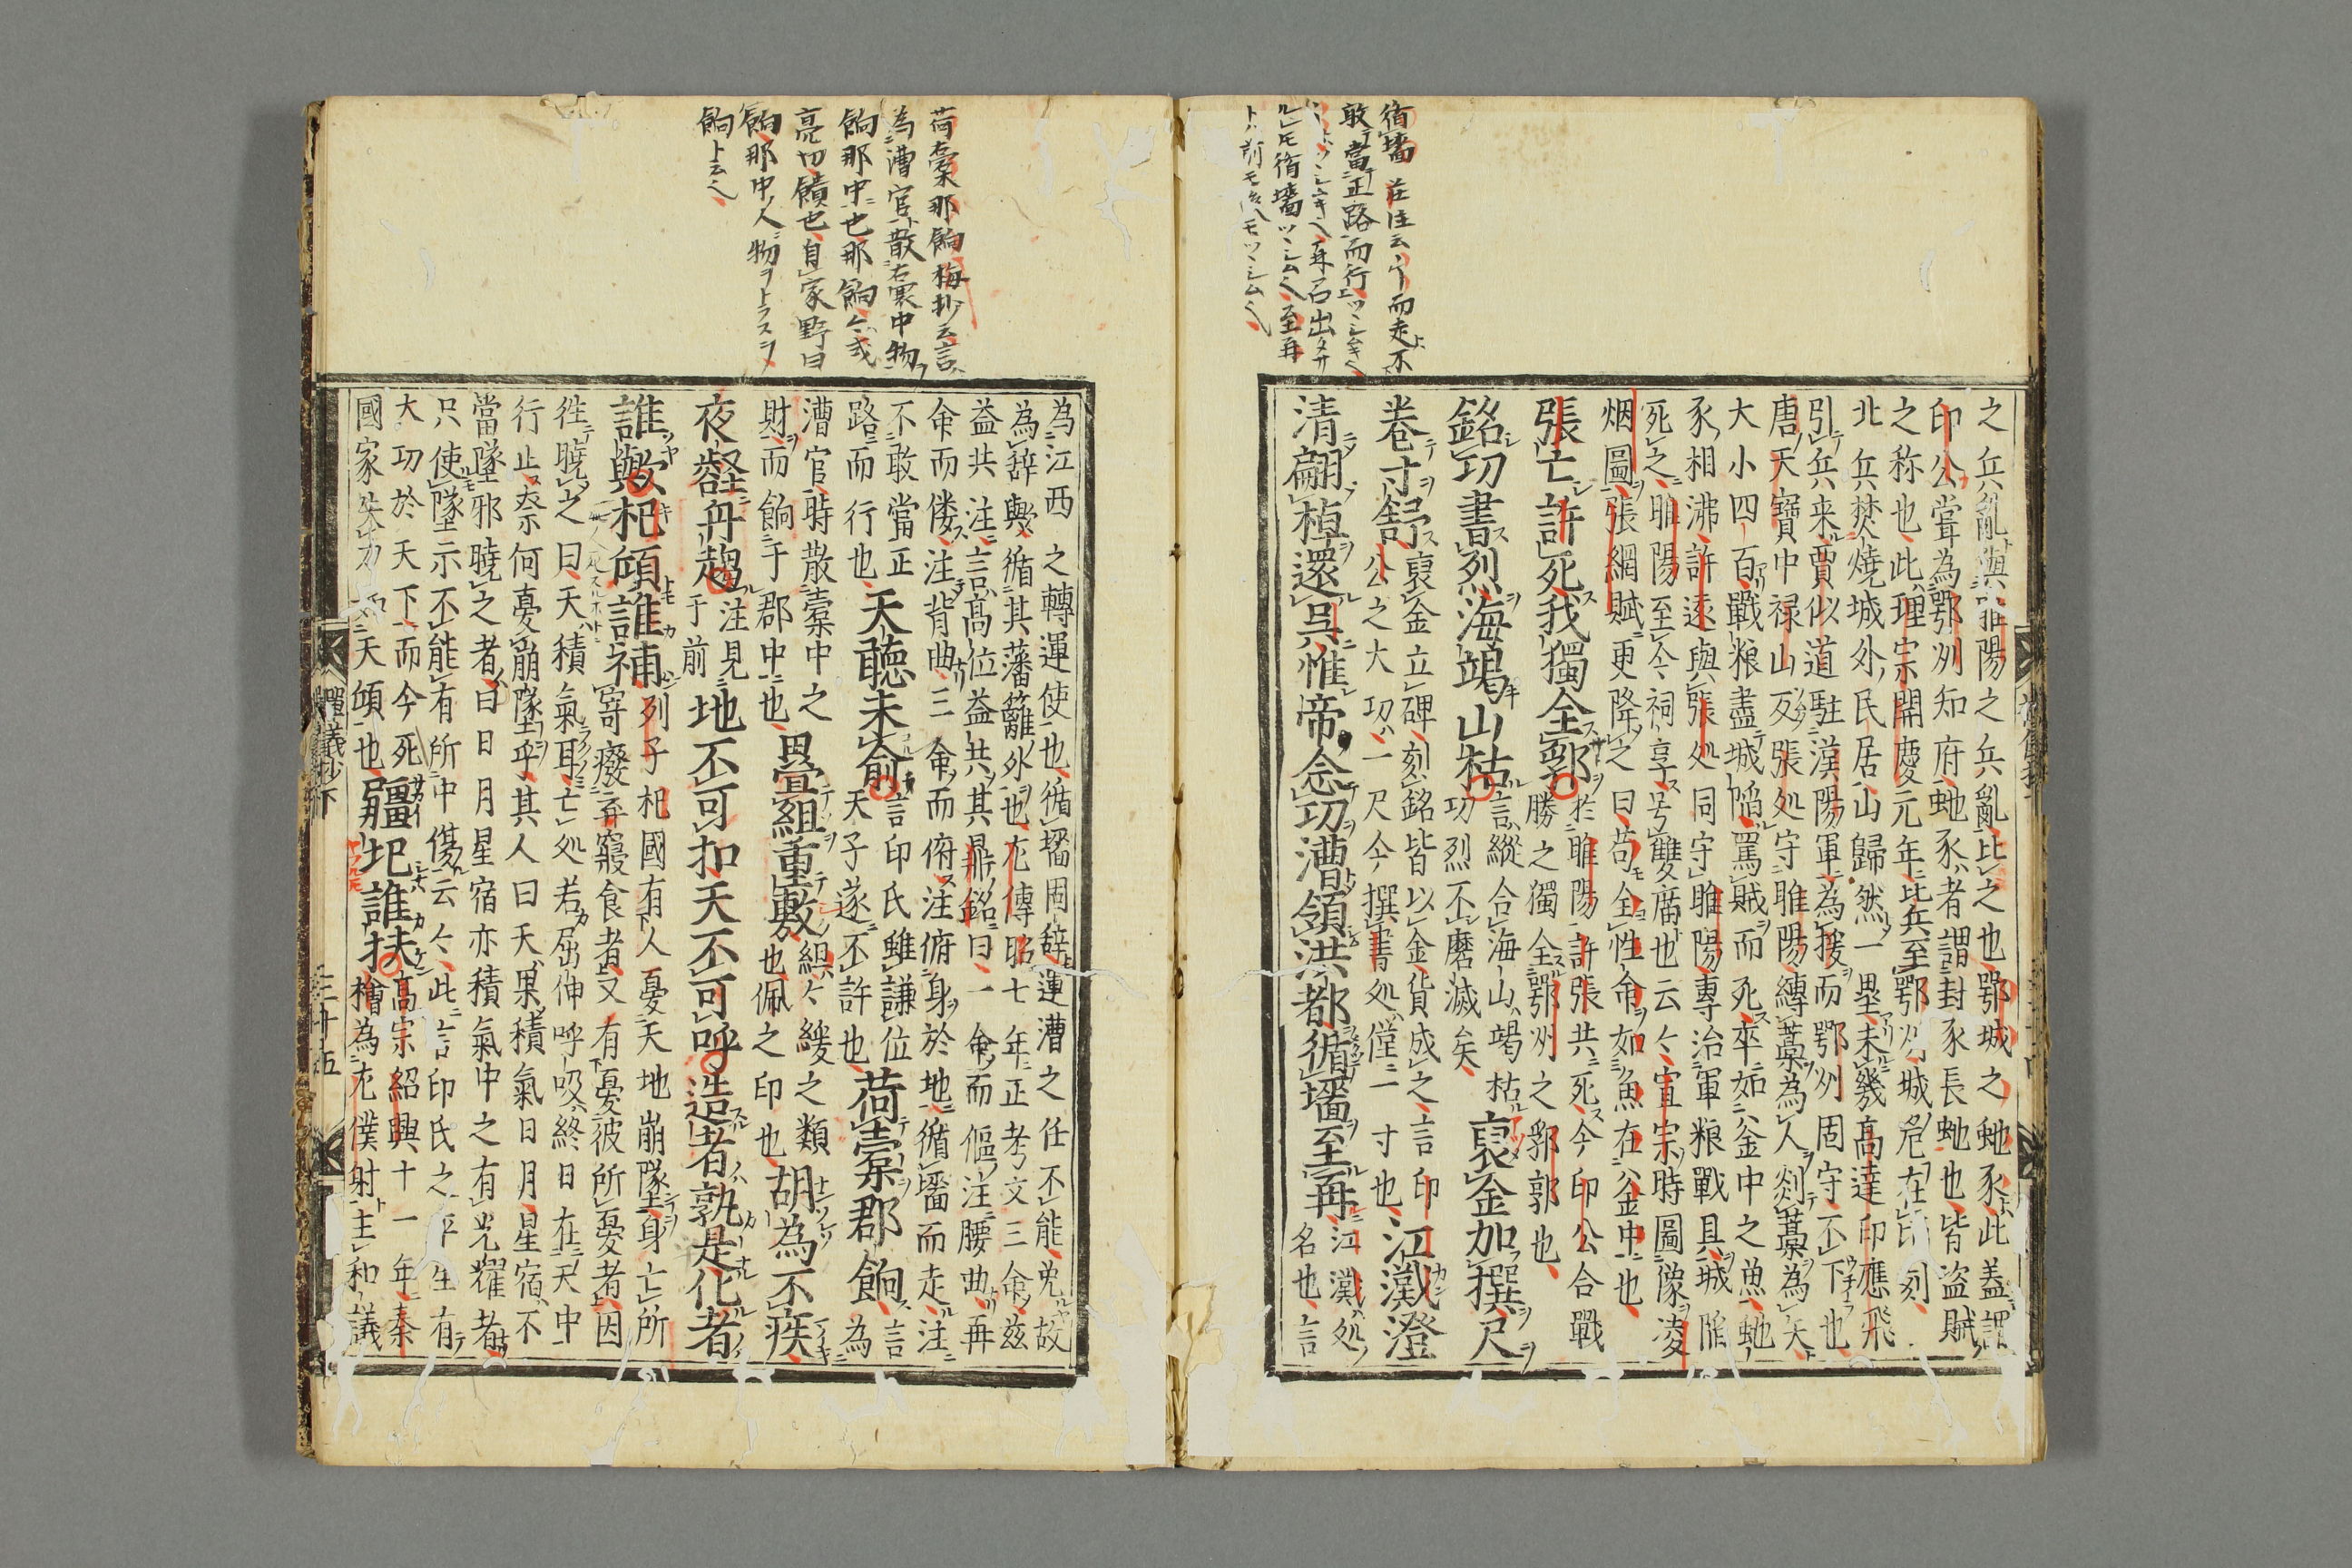 之兵亂與睢陽之兵亂比之也鄂城之虵豕此盖謂
印公甞為鄂州知府虵豕者謂封豕長虵也皆盗賊
之称也此理宗開慶元年北兵至鄂州城危在
北兵焚燒城外民居山歸然一壘未幾高達印應飛
引兵来賈似道駐漢陽軍為援而鄂州固守不下也
唐天寶中禄山反張処守睢陽縛藁為人剡藁為矢
大小四百戰粮盡城陥罵賊而死卒如釜中之魚虵
豕相沸許遠與張処同守睢陽專治軍粮戰具城陥
死之睢陽至今祠享号雙廟也云々宣宗時圖像凌
烟圖張綱賦更降之曰苟全性命如魚在釜中也
張亡許死我獨全郭 於睢陽許張共死今印公合戰
勝之獨全鄂州之郛郭也
銘功書烈海竭山枯 言縱合海山竭枯
功烈不磨滅矣 裒金加撰尺
卷寸舒 裒金立碑刻銘皆以金貨成之言印
公之大功一尺今撰書処僅一寸也 江瀻澄
清翩棹還呉惟帝念功漕領洪都循墻至再 江瀻処
名也言
循墻 莊注云 而走不
敢當正路而行
ル
ト
為江西之轉運使也循墻固辞運漕之任不能免故
為辞與循其藩籬外也左傳昭七年正考文三命茲
益共注言高位益共其鼎銘曰一命而傴注腰曲再
命而僂注背曲三命而俯注俯身於地循墻而走注
不敢當正 天聴未俞 言印氏雖謙位 荷橐郡餉 言
路而行也 天子遂不許也 為
漕官時散橐中之 畳組重敷 組々綬之類 胡為不疾
財而餉于郡中也 也佩之印也
夜壑舟趨 注見 地不可扣天不可呼造者孰是化者
于前
誰歟杞傾誰補 列子杞國有人憂天地崩墜身亡所
寄癈弃寝食者又有憂彼所憂者因
徃曉之曰天積氣耳亡処若屈伸呼吸終日在天中
行止奈何憂崩墜乎其人曰天果積氣日月星宿不
當墜邪曉之者曰日月星宿亦積氣中之有光耀者
只使墜示不能有所中傷云々此言印氏之平生有
大功於天下而今死 疆圯誰扶 高宗紹興十一年秦
國家失力如天傾也 檜為左僕射主和議
荷橐那餉梅抄云言
為漕官散右囊中物
餉那中也那餉今或
亮切饋也自家野曰
餉那中人物ヲトラスヲ
餉ト云